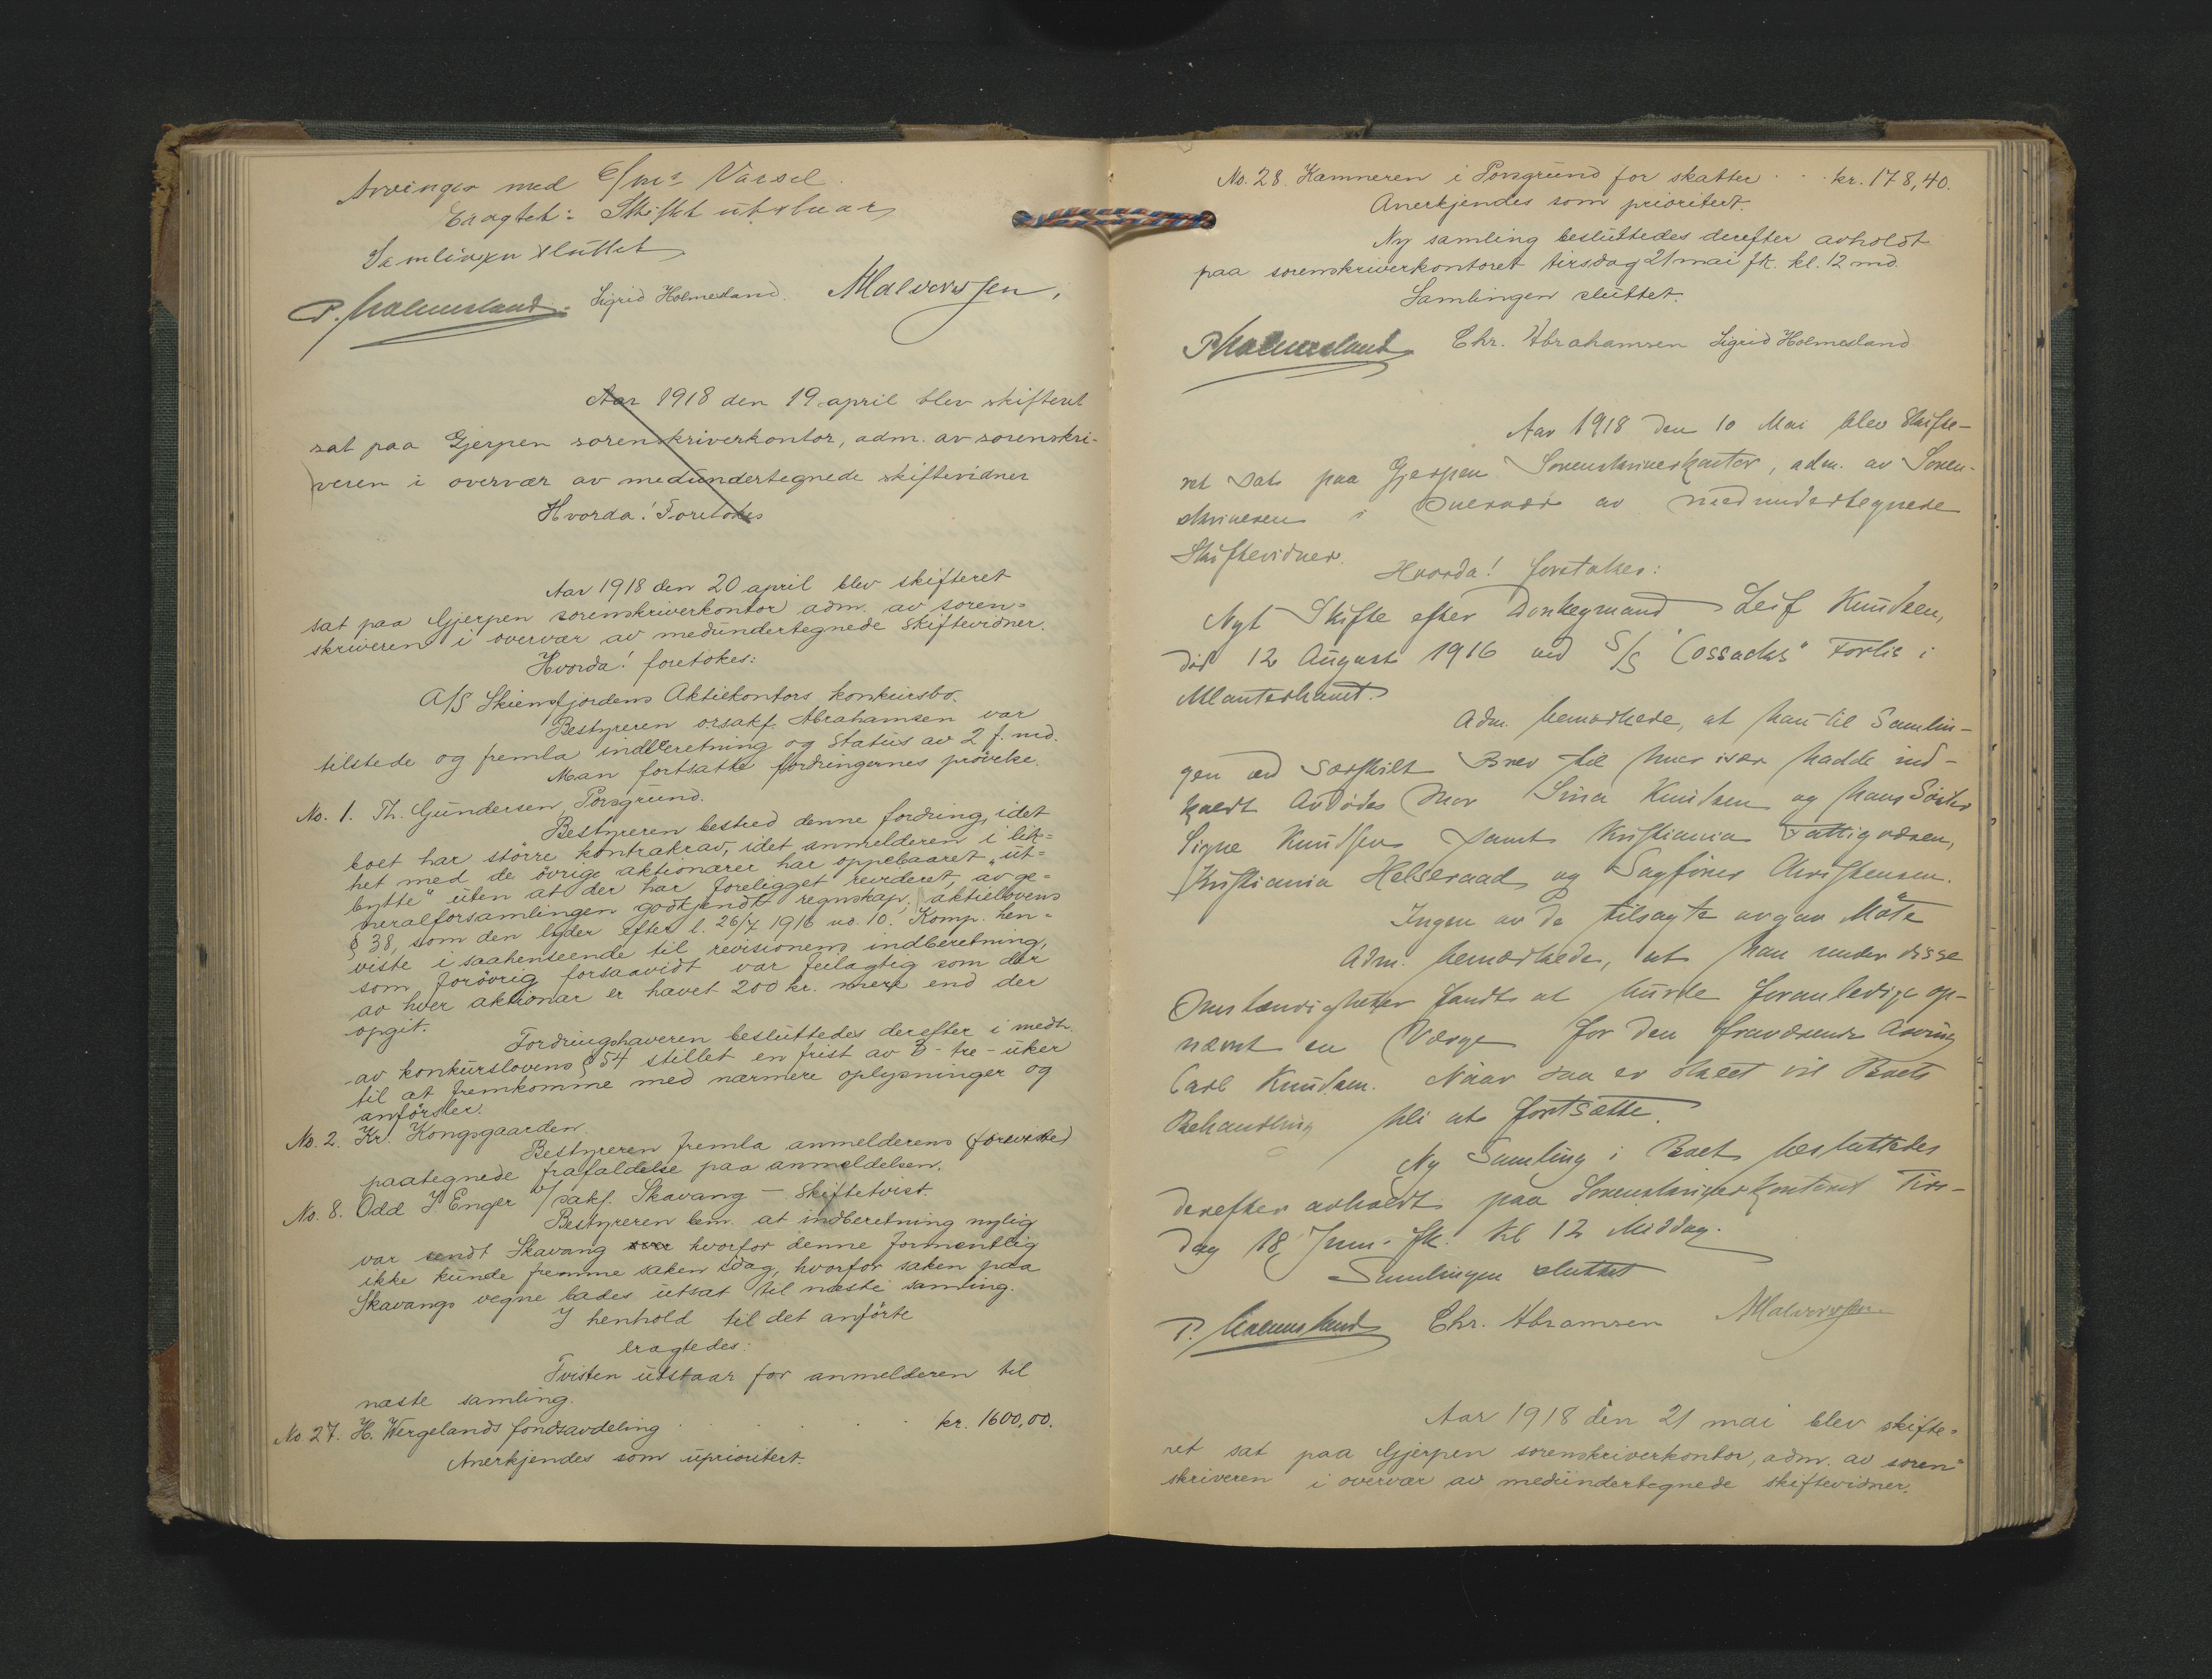 Arvinger med 6/m's Varsel.
Eragtet: Skiftet utstaar
Samlingen sluttet
P. Holmesland. Sigrid Holmesland. MHalvorsen.
Aar 1918 den 19 april blev skifteret
sat paa Gjerpen sorenskriverkontor, adm. av sorenskri-
veren i overvær av medundertegnede skiftevidner
Hvorda! Foretokes
Aar 1918 den 20 april blev skifteret
sat paa Gjerpen sorenskriverkontor adm. av soren-
skriveren i overvær av medundertegnede skiftevidner.
Hvorda! foretokes:
A/S Skiensfjordens Aktiekontors konkursbo.
Bestyreren o.r.sakf. Abrahamsen var
tilstede og fremla indberetning og status av 2 f. md.
Man fortsatte fordringernes prövelse.
No. 1. Th. Gundersen, Porsgrund.
Bestyreren bestred denne fordring, idet
boet har större kontrakrav, idet anmelderen i lik-
het med de övrige aktionærer har oppebaaret „ut-
bytte" uten at der har foreligget revideret, av ge-
neralforsamlingen godkjendt regnskap, aktielovens
§ 38, som den lyder efter l. 26/7 1916 no. 10. Komp. hen-
viste i saahenseende til revisionens indberetning,
som forövrig forsaavidt var feilagtig som der
av hver aktionær er hævet 200 kr. mere end der
opgit.
Fordringshaveren besluttedes derefter i medh.
av konkurslovens § 54 stillet en frist av 3 - tre - uker
til at fremkomme med nærmere oplysninger og
anförsler.
No. 2. Kr. Kongsgaarden.
Bestyreren fremla anmelderens (forevist)
paategnede frafaldelse paa anmeldelsen.
No. 8. Odd J Enger v/ sakf. Skavang — Skiftetvist.
Bestyreren bem. at indberetning nylig
var sendt Skavang hvorfor denne formentlig
ikke kunde fremme saken idag, hvorfor saken paa
Skavangs vegne bades utsat til næste samling.
I henhold til det anförte
eragtedes:
Tvisten utstaar for anmelderen til
næste samling.
No. 27. H. Wergelands fondsavdeling . . . . . kr. 1600,00.
Anerkjendes som uprioritert.
No. 28. Kæmneren i Porsgrund for skatter . . . kr. 178,40.
Anerkjendes som prioritert.
Ny samling besluttedes derefter avholdt
paa sorenskriverkontoret tirsdag 21 mai fk. kl. 12 md.
Samlingen sluttet.
P Holmesland Chr. Abrahamsen Sigrid Holmesland
Aar 1918 den 10 Mai blev Skifte-
ret sat paa Gjerpen Sorenskriverkontor, adm. av Soren-
skriveren i Overvær av medundertegnede
Skiftevidner.
Hvorda! foretokes:
Nyt Skifte efter Donkeymand Leif Knudsen,
död 12 August 1916 ved S/S "Cossacks" Forlis i
Atlanterhavet.
Adm. bemærkede, at han til Samlin-
gen ved særskilt Brev til hver især hadde ind-
kaldt Avdödes Mor Sina Knudsen og hans Söster
Signe Knudsen samt Kristiania Fattigvæsen,
Kristiania Helseraad og Sagförer Christensen.
Ingen av de tilsagte avgav Möte
Adm. bemærkede, at han under disse
Omstændigheter fandt at burde foranledige op-
nævnt en Værge for den fraværende Arving
Carl Knudsen. Naar saa er skeet vil Boets
Behandling bli at fortsætte.
Ny Samling i Boet besluttedes
derefter avholdt paa Sorenskriverkontoret Tirs-
dag 18 Juni fk. kl 12 Middag.
Samlingen sluttet
P. Holmesland Chr. Abramsen MHalvorsen
Aar 1918 den 21 mai blev skifte-
ret sat paa Gjerpen sorenskriverkontor, adm. av soren-
skriveren i overvær av medundertegnede skiftevidner.